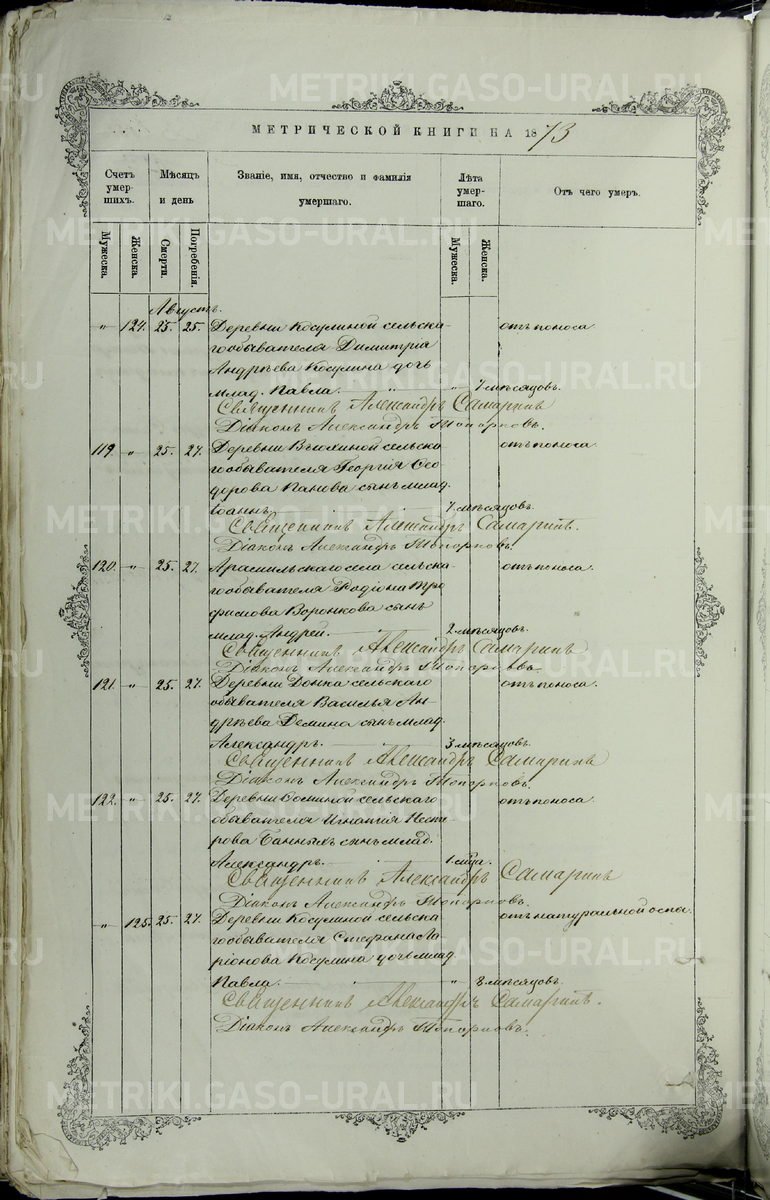 METRIKI.GASO-URAL.RU
МЕТРИЧЕСКОЙ КНИГИ НА 1873
Счетъ умер- шихъ. Мѣсяцъ и день Званіе, имя, отчество и фамилія умершаго. Лѣта умер- шаго. Отъ чего умеръ.
Мужеска. Женска. Смерти. Погребенія. Мужеска. Женска.
Августъ.
" 124. 25. 25. Деревни Косулиной сельска- отъ поноса
гообывателя Димитрія
Андрѣева Косулина дочь
млад. Павла. " 7 мѣсяцовъ.
Священникъ Александръ Самаринъ
Діаконъ Александръ Топорковъ.
119 " 25. 27. Деревни сельска отъ поноса
гообывателя Георгія Ѳео
дорова Панова сынъ млад.
Іоаннъ. 7 мѣсяцовъ.
Священникъ Александръ Самаринъ.
Діаконъ Александръ Топорковъ.
120. " 25. 27. Арамильскаго села сельска отъ поноса.
гообывателя Родіона Тро
фимова Воронкова сынъ
млад. Андрей. 2 мѣсяцовъ.
Священникъ Александръ Самаринъ
Діаконъ Александръ Топорковъ.
121. " 25. 27. Деревни сельскаго отъ поноса.
обывателя Василья Ан-
дрѣева Демина сынъ млад.
Александръ. 3 мѣсяцовъ.
Священникъ Александръ Самаринъ
Діаконъ Александръ Топорковъ.
122. " 25. 27. Деревни сельскаго отъ поноса
обывателя Игнатія Несте
рова Банныхъ сынъ млад.
Александръ. 1 мѣца.
Священникъ Александръ Самаринъ
Діаконъ Александръ Топорковъ.
" 125. 25. 27. Деревни Косулиной сельска отъ натуральной оспы.
гообывателя Стефана Ла-
ріонова Косулина дочь млад
Павла. " 8 мѣсяцовъ.
Священникъ Александръ Самаринъ.
Діаконъ Александръ Топорковъ.